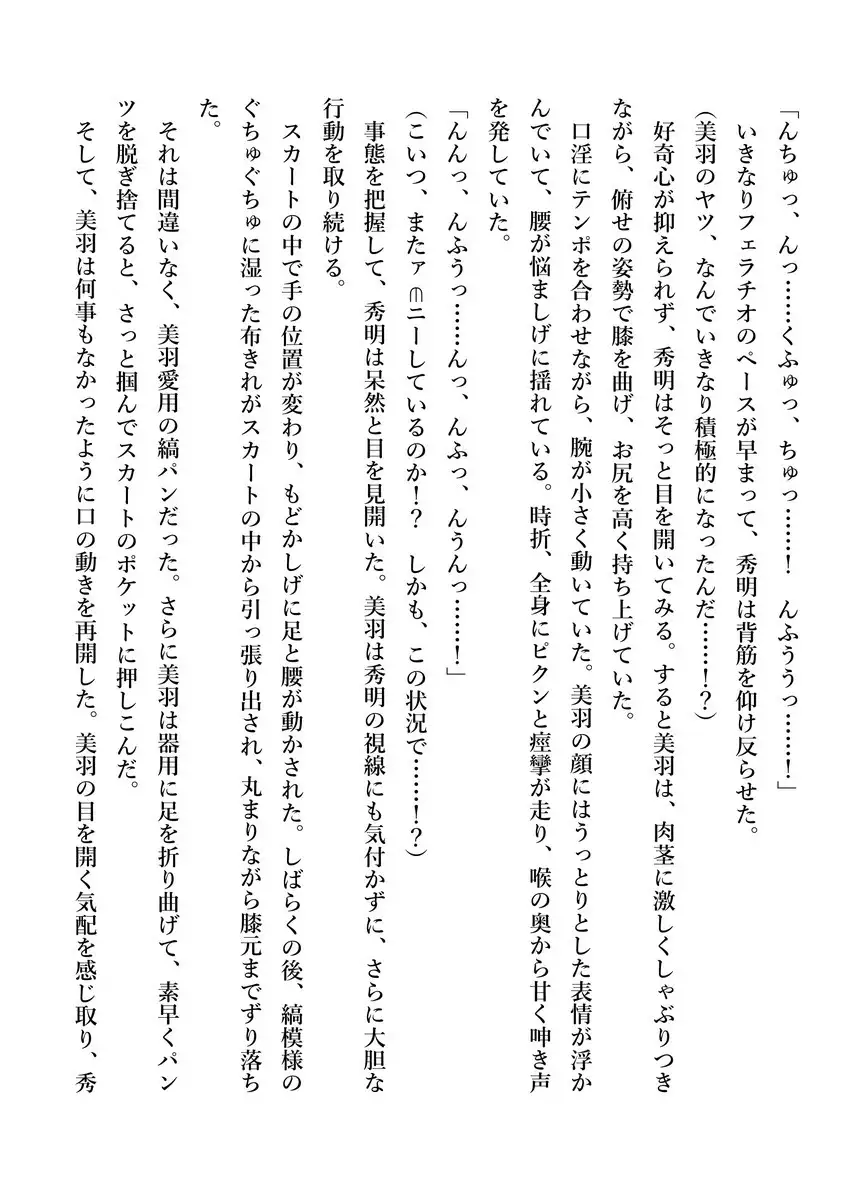 「んちゅっ、んっ……くふゅっ、ちゅっ……！　んふううっ……！」
いきなりフェラチオのペースが早まって、秀明は背筋を仰け反らせた。
(美羽のヤツ、なんでいきなり積極的になったんだ……！？)
好奇心が抑えられず、秀明はそっと目を開いてみる。すると美羽は、肉茎に激しくしゃぶりつき
ながら、俯せの姿勢で膝を曲げ、お尻を高く持ち上げていた。
口淫にテンポを合わせながら、腕が小さく動いていた。美羽の顔にはうっとりとした表情が浮か
んでいて、腰が悩ましげに揺れている。時折、全身にピクンと痙攣が走り、喉の奥から甘く呻き声
を発していた。
「んんっ、んふうっ……んっ、んふっ、んうんっ……！」
(こいつ、またァ⋒ニーしているのか！？　しかも、この状況で……！？)
事態を把握して、秀明は呆然と目を見開いた。美羽は秀明の視線にも気付かずに、さらに大胆な
行動を取り続ける。
スカートの中で手の位置が変わり、もどかしげに足と腰が動かされた。しばらくの後、縞模様の
ぐちゅぐちゅに湿った布きれがスカートの中から引っ張り出され、丸まりながら膝元までずり落ち
た。
それは間違いなく、美羽愛用の縞パンだった。さらに美羽は器用に足を折り曲げて、素早くパン
ツを脱ぎ捨てると、さっと掴んでスカートのポケットに押しこんだ。
そして、美羽は何事もなかったように口の動きを再開した。美羽の目を開く気配を感じ取り、秀